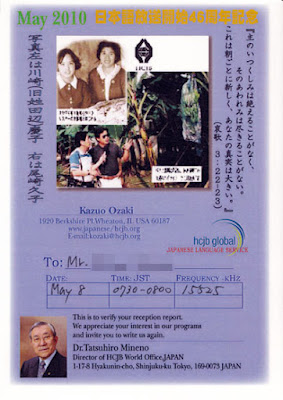 May 2010 日本国際放送開始46周年記念
写真左は川崎(旧姓田辺)慶子 右は尾崎久子
『主のいつくしみは絶えることがなく、
そのあわれみは尽きることがない。
これは朝ごとに新しく、あなたの真実は大きい。』
(哀歌 3:22-23)
HCJB
Kazuo Ozaki
1920 Berkshire Pl.Wheaton, IL USA 60187
www.japanese/hcjb.org
E-mail:kozaki@hcjb.org
hcjb global
JAPANESE LANGUAGE SERVICE
To: Mr.
DATE: TIME: JST FREQUENCY -KHZ
May 8 0730-0800 15525
This is to verify your reception report.
We appreciate your interest in our programs
and invite you to write us again.
Dr.Tatsuhiro Mineno
Director of HCJB World Office,JAPAN
1-17-8 Hyakunin-cho, Shinjuku-ku Tokyo, 169-0073 JAPAN